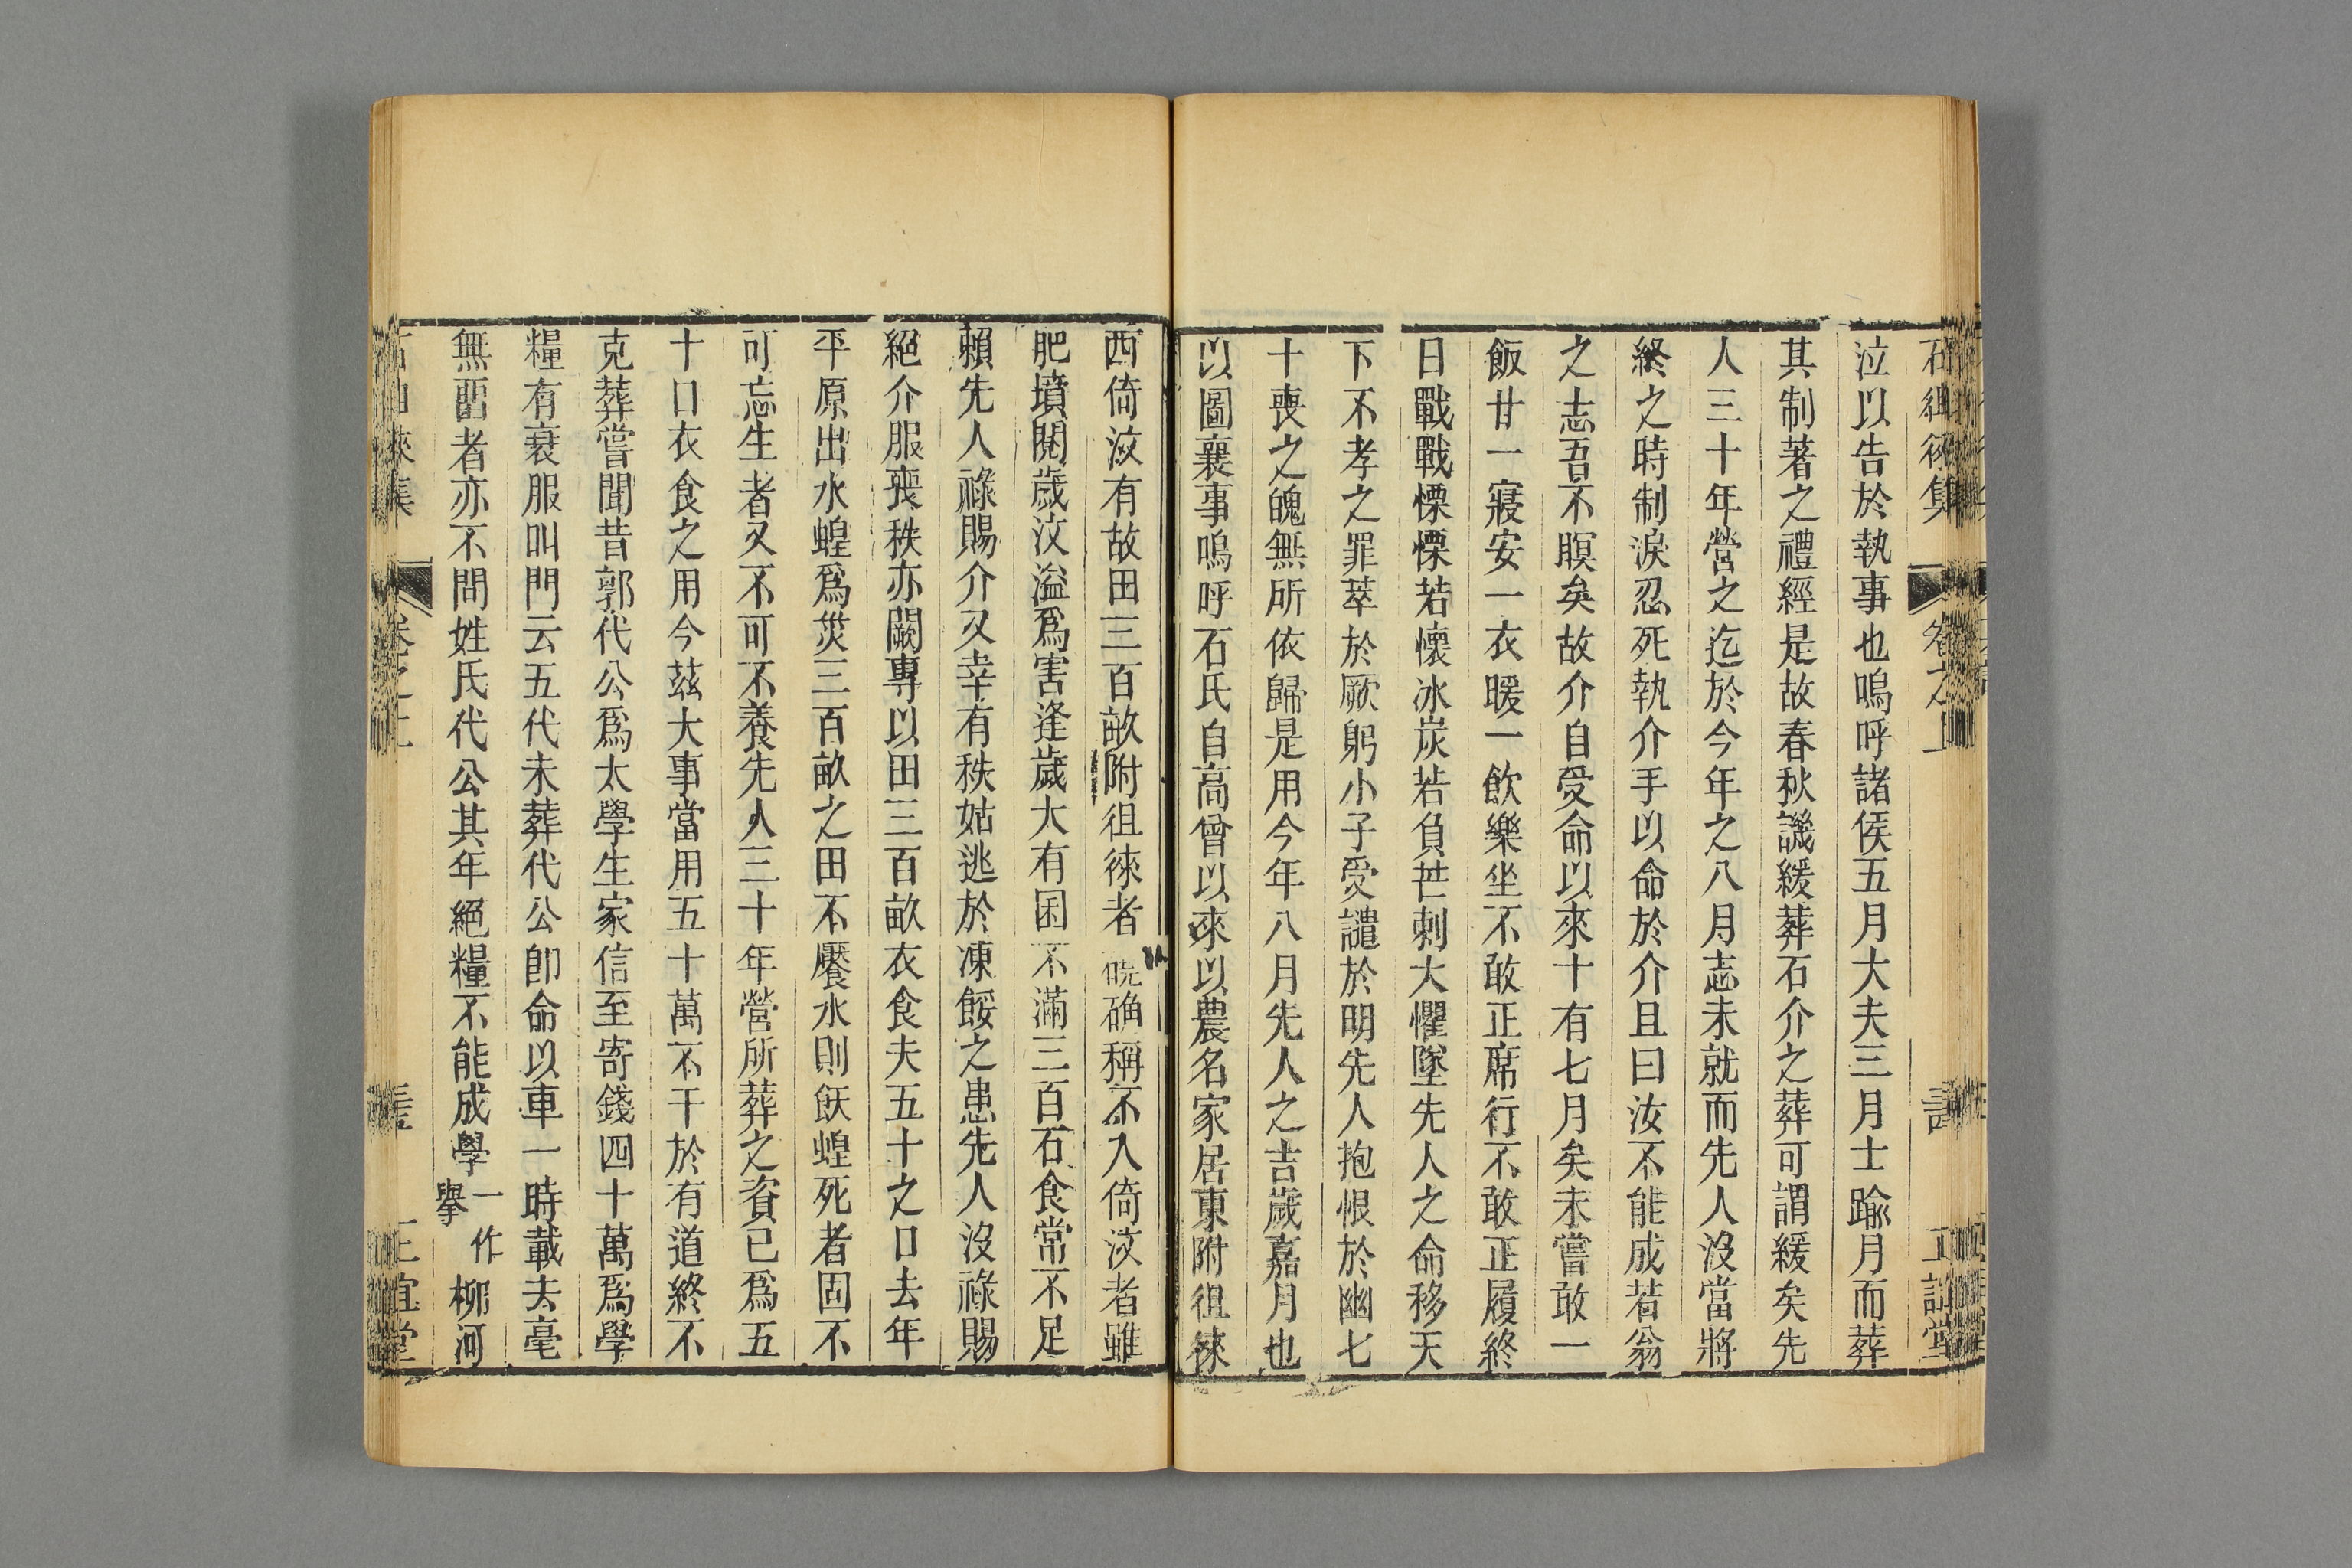 石徂徠集 卷之上
泣以告於執事也嗚呼諸侯五月大夫三月士踰月而葬
其制著之禮經是故春秋譏緩葬石介之葬可謂緩矣先
人三十年營之迄於今年之八月志未就而先人沒當將
終之時制淚忍死執介手以命於介且曰汝不能成若翁
之志吾不瞑矣故介自受命以來十有七月矣未嘗敢一
飯甘一寢安一衣暖一飲樂坐不敢正席行不敢正履終
日戰戰慄慄若懷冰炭若負芒刺大懼墜先人之命移天
下不孝之罪萃於厥躬小子受譴於明先人抱恨於幽七
十喪之魄無所依歸是用今年八月先人之吉歲嘉月也
以圖襄事嗚呼石氏自高曾以來以農名家居東附徂徠
西倚汶有故田三百畝附徂徠者磽确稱不入倚汶者雖
肥墳閱歲汶溢爲害逢歲大有困不滿三百石食常不足
賴先人祿賜介又幸有秩姑逃於凍餒之患先人沒祿賜
絕介服喪秩亦闕專以田三百畝衣食夫五十之口去年
平原出水蝗爲災三百畝之田不饜水則飫蝗死者固不
可忘生者又不可不養先人三十年營所葬之資已爲五
十口衣食之用今茲大事當用五十萬不干於有道終不
克葬嘗聞昔郭代公爲太學生家信至寄錢四十萬爲學
糧有衰服叫門云五代未葬代公卽命以車一時載去毫
無畱者亦不問姓氏代公其年絕糧不能成學一作舉柳河